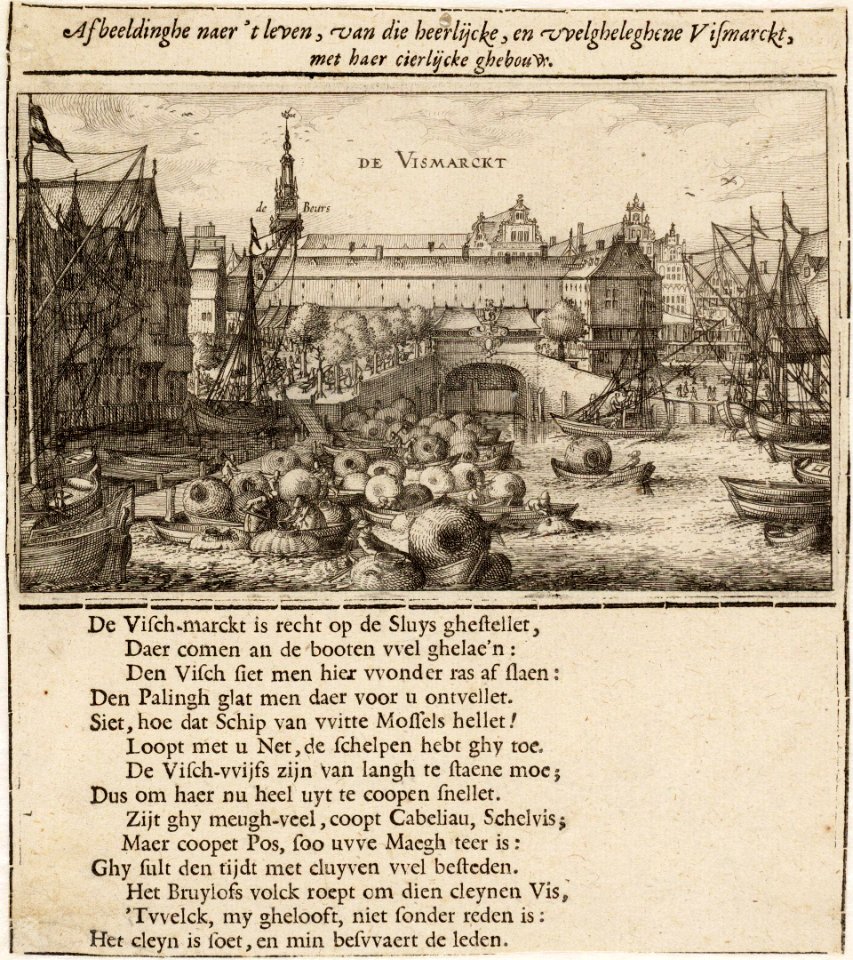 Afbeeldinghe naer 't leven, van die heerlijcke, en vvelgheleghene Viſmarckt,
met haer cierlijcke ghebouw.
DE VISMARCKT
de Beurs
De Viſch-marckt is recht op de Sluys gheſtellet,
Daer comen an de booten vvel ghelae'n:
Den Viſch ſiet men hier vvonder ras af ſlaen:
Den Palingh glat men daer voor u ontvellet.
Siet, hoe dat Schip van vvitte Moſſels hellet!
Loopt met u Net, de ſchelpen hebt ghy toe.
De Viſch-vvijfs zijn van langh te ſtaene moe;
Dus om haer nu heel uyt te coopen ſnellet.
Zijt ghy meugh-veel, coopt Cabeliau, Schelvis;
Maer coopet Pos, ſoo uvve Maegh teer is:
Ghy ſult den tijdt met cluyven vvel beſteden.
Het Bruylofs volck roept om dien cleynen Vis,
'Tvvelck, my ghelooft, niet ſonder reden is:
Het cleyn is ſoet, en min beſvvaert de leden.